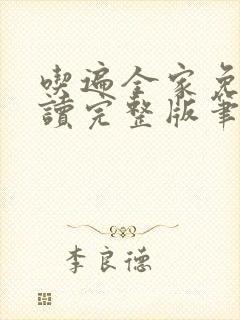 喫遍全家免
讀完整版筆
李良德